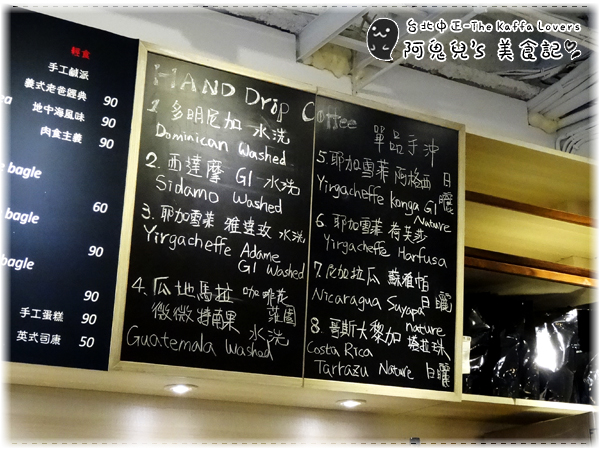 台北中正-The Kaffa Lovers
阿兔兒's 美食記
輕食
手工鹹派
義式老爸經典 90
地中海風味 90
肉食主義 90
bagle
60
bagle
90
bagle
90
手工蛋糕 90
英式司康 50
HAND Drip Coffee 單品手沖
1. 多明尼加 水洗
Dominican Washed
2. 西達摩 G1 水洗
Sidamo Washed
3. 耶加雪菲 雅達玫 水洗
Yirgacheffe Adame
G1 Washed
4. 瓜地馬拉 咖啡花
微微特南果 莊園
水洗
Guatemala Washed
5. 耶加雪菲 阿格西 日曬
Yirgacheffe Konga G1
Nature
6. 耶加雪菲 荷芙莎
Yirgacheffe Harfusa
7. 尼加拉瓜 蘇雅帕
Nicaragua Suyapa 日曬
nature
8. 哥斯大黎加 塔拉珠
Costa Rica
Tarrazu Nature 日曬